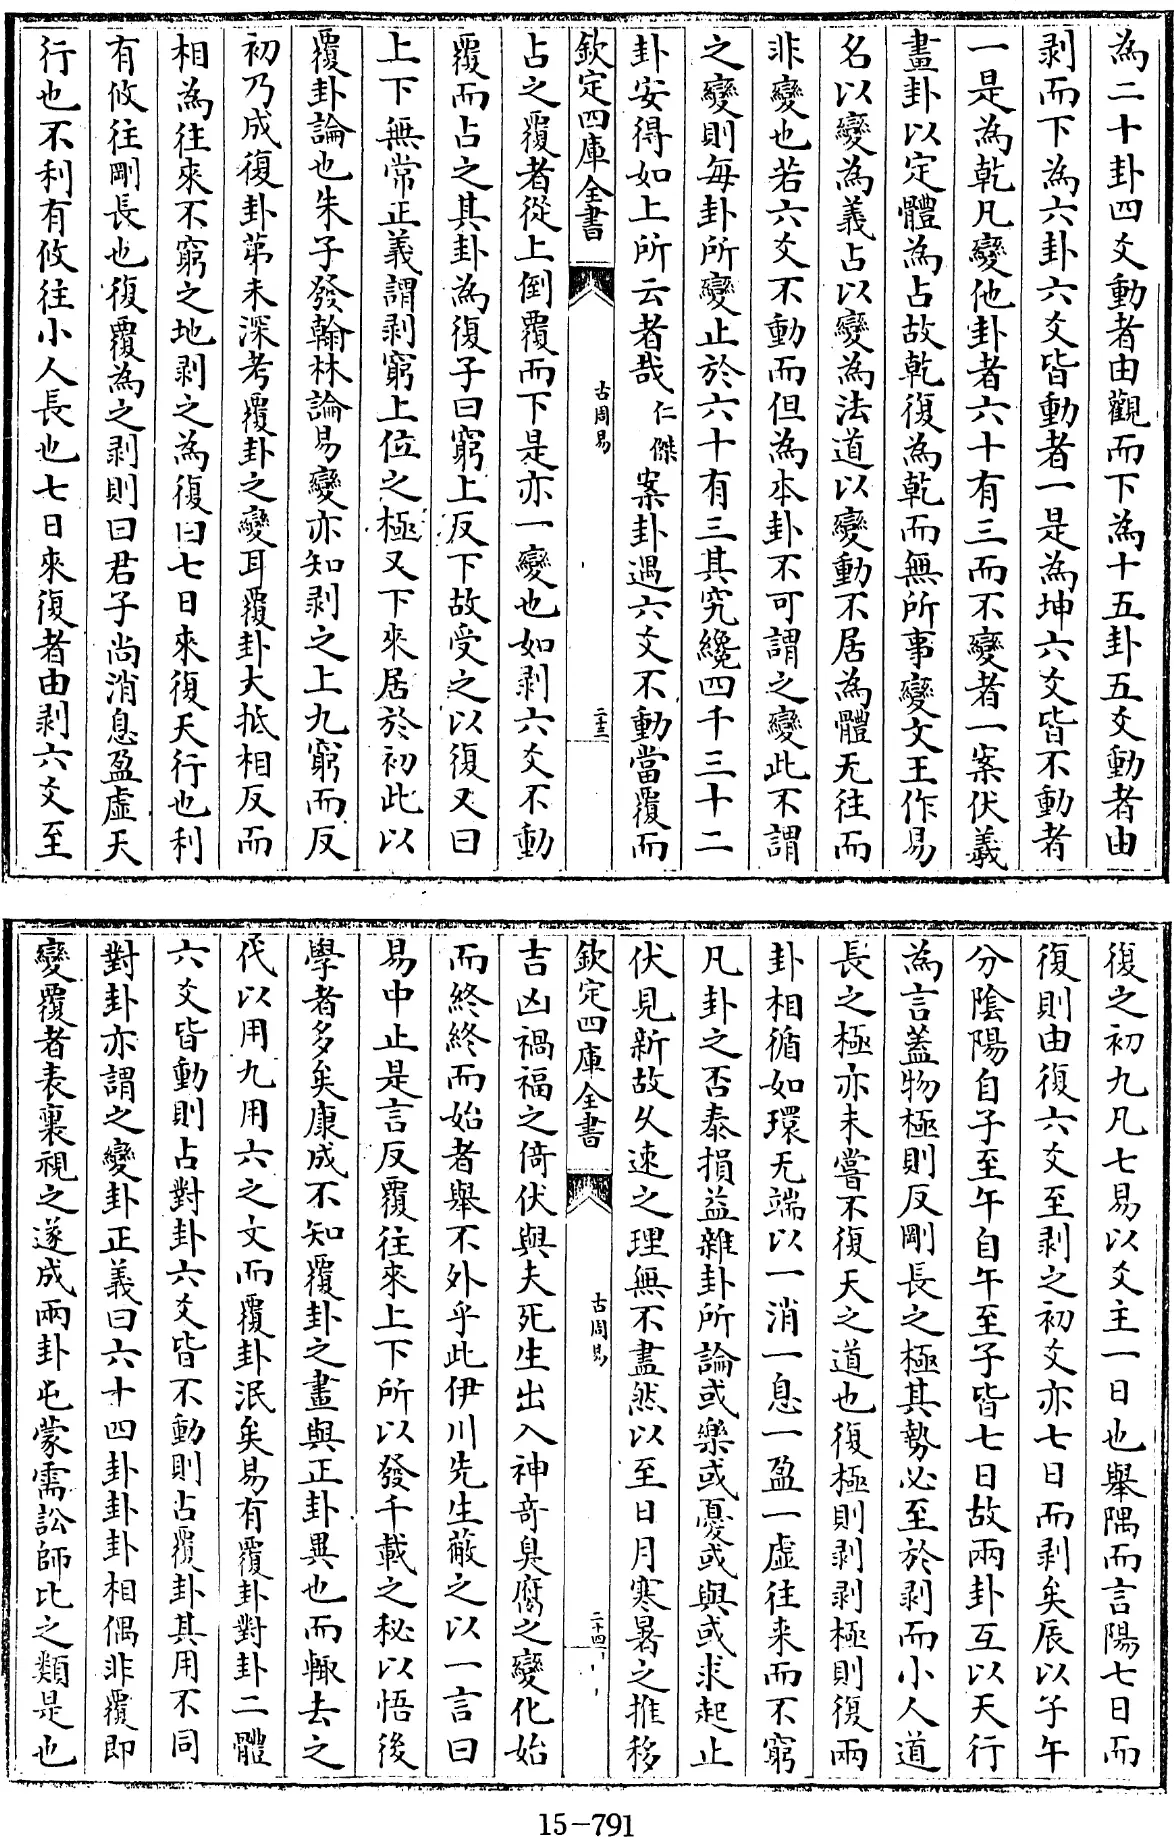 為二十卦四爻動者由觀而下為十五卦五爻動者由
剥而下為六卦六爻皆動者一是為坤六爻皆不動者
一是為乾凡變他卦者六十有三而不變者一案伏羲
畫卦以定體為占故乾復為乾而無所事變文王作易
名以變為義占以變為法道以變動不居為體无往而
非變也若六爻不動而但為本卦不可謂之變此不謂
之變則每卦所變止於六十有三其究纔四千三十二
卦安得如上所云者哉仁傑案卦遇六爻不動當覆而
欽定四庫全書
古周易
二十三
占之覆者從上倒覆而下是亦一變也如剥六爻不動
覆而占之其卦為復子曰窮上反下故受之以復又曰
上下無常正義謂剥窮上位之極又下來居於初此以
覆卦論也朱子發翰林論易變亦知剥之上九窮而反
初乃成復卦苐未深考覆卦之變耳覆卦大抵相反而
相為往來不窮之地剥之為復曰七日來復天行也利
有攸往剛長也復覆為之剥則曰君子尚消息盈虛天
行也不利有攸往小人長也七日來復者由剥六爻至
復之初九凡七易以爻主一日也舉隅而言陽七日而
復則由復六爻至剥之初爻亦七日而剥矣辰以子午
分陰陽自子至午自午至子皆七日故兩卦互以天行
為言蓋物極則反剛長之極其勢必至於剥而小人道
長之極亦未嘗不復天之道也復極則剥剥極則復兩
卦相循如環无端以一消一息一盈一虛往来而不窮
凡卦之否泰損益雜卦所論或樂或憂或與或求起止
伏見新故久速之理無不盡然以至日月寒暑之推移
欽定四庫全書
古周易
二十四
吉凶禍福之倚伏與夫死生出入神竒臭腐之變化始
而終終而始者舉不外乎此伊川先生蔽之以一言曰
易中止是言反覆往來上下所以發千載之秘以悟後
學者多矣康成不知覆卦之畫與正卦異也而輙去之
代以用九用六之文而覆卦泯矣易有覆卦對卦二體
六爻皆動則占對卦六爻皆不動則占覆卦其用不同
對卦亦謂之變卦正義曰六十四卦卦卦相偶非覆即
變覆者表裏視之遂成兩卦屯蒙需訟師比之類是也
15-791